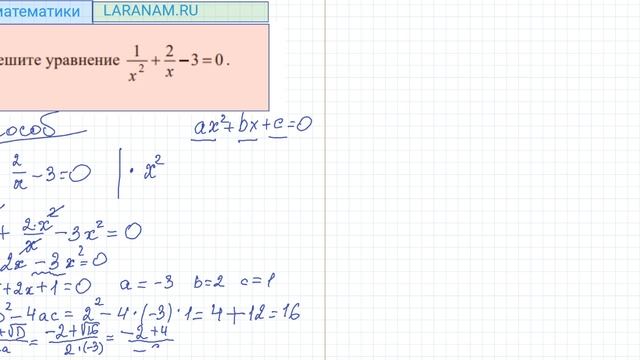 математики LARANAM.RU
ешите уравнение 1/x² + 2/x − 3 = 0.
особ ax² + bx + c = 0
2/x − 3 = 0 | · x²
+ 2·x²/x − 3x² = 0
2x − 3x² = 0
+ 2x + 1 = 0 a = −3 b = 2 c = 1
b² − 4ac = 2² − 4·(−3)·1 = 4 + 12 = 16
+√D/a = −2+√16/2·(−3) = −2+4/−6